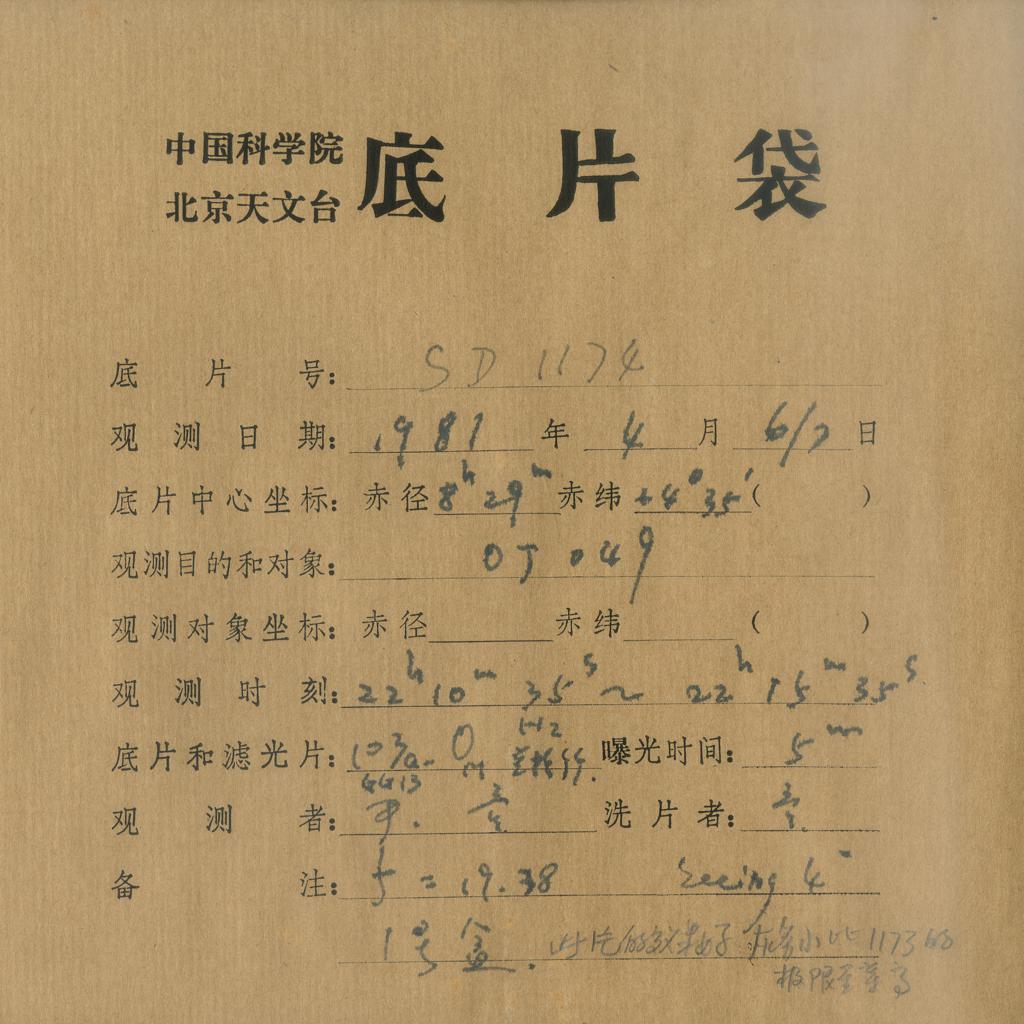 中国科学院
北京天文台
底片袋
底片号: SD 1174
观测日期: 1981 年 4 月 6/7 日
底片中心坐标: 赤径 8h 29m 赤纬 +4° 35' ( )
观测目的和对象: OJ 049
观测对象坐标: 赤径 赤纬 ( )
观测时刻: 22h 10m 35s ~ 22h 15m 35s
底片和滤光片: 103a-O H2 曝光时间: 5m
4413
观测者: 洗片者:
备注: f = 19.38 Seeing 4"
1号盒. 此片 1173的
极限星等高